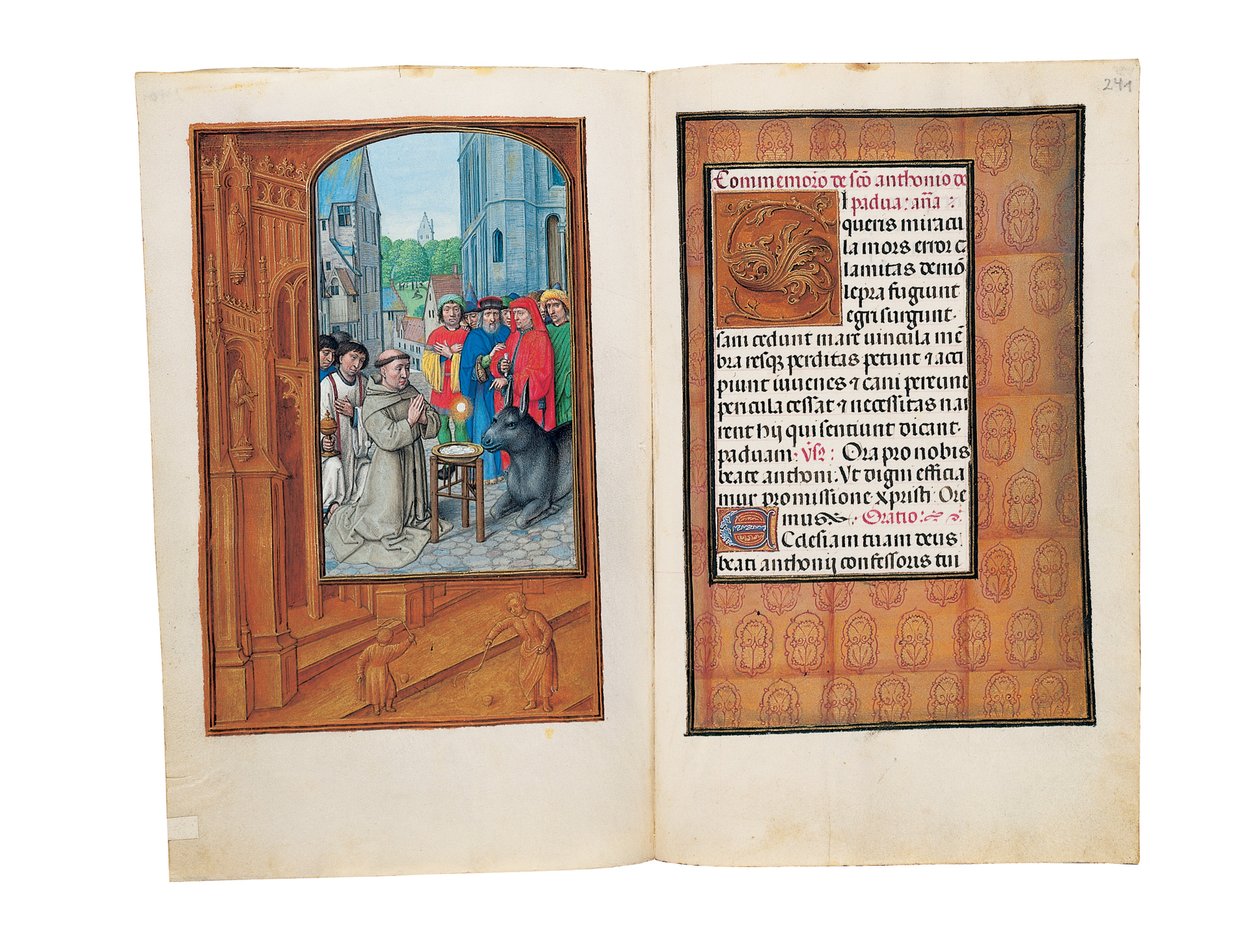 241
Commemoro de sco anthonio de
padua: aña:
Si queris miracu
la mors error c
lamitas demõ
lepra fugiunt
egri surgunt.
sani cedunt mare uincula mẽ
bra resqȝ perditas petunt ⁊ acci
piunt iuuenes ⁊ cani pereunt
pericula cessat ⁊ necessitas nar
rent hij qui sentiunt dicant.
paduani. Vsꝰ: Ora pro nobis
beate anthoni. Vt digni efficia
mur promissione xpristi. Ore
mus. Oratio:
Ecclesiam tuam deus
beati anthonij confessoris tui